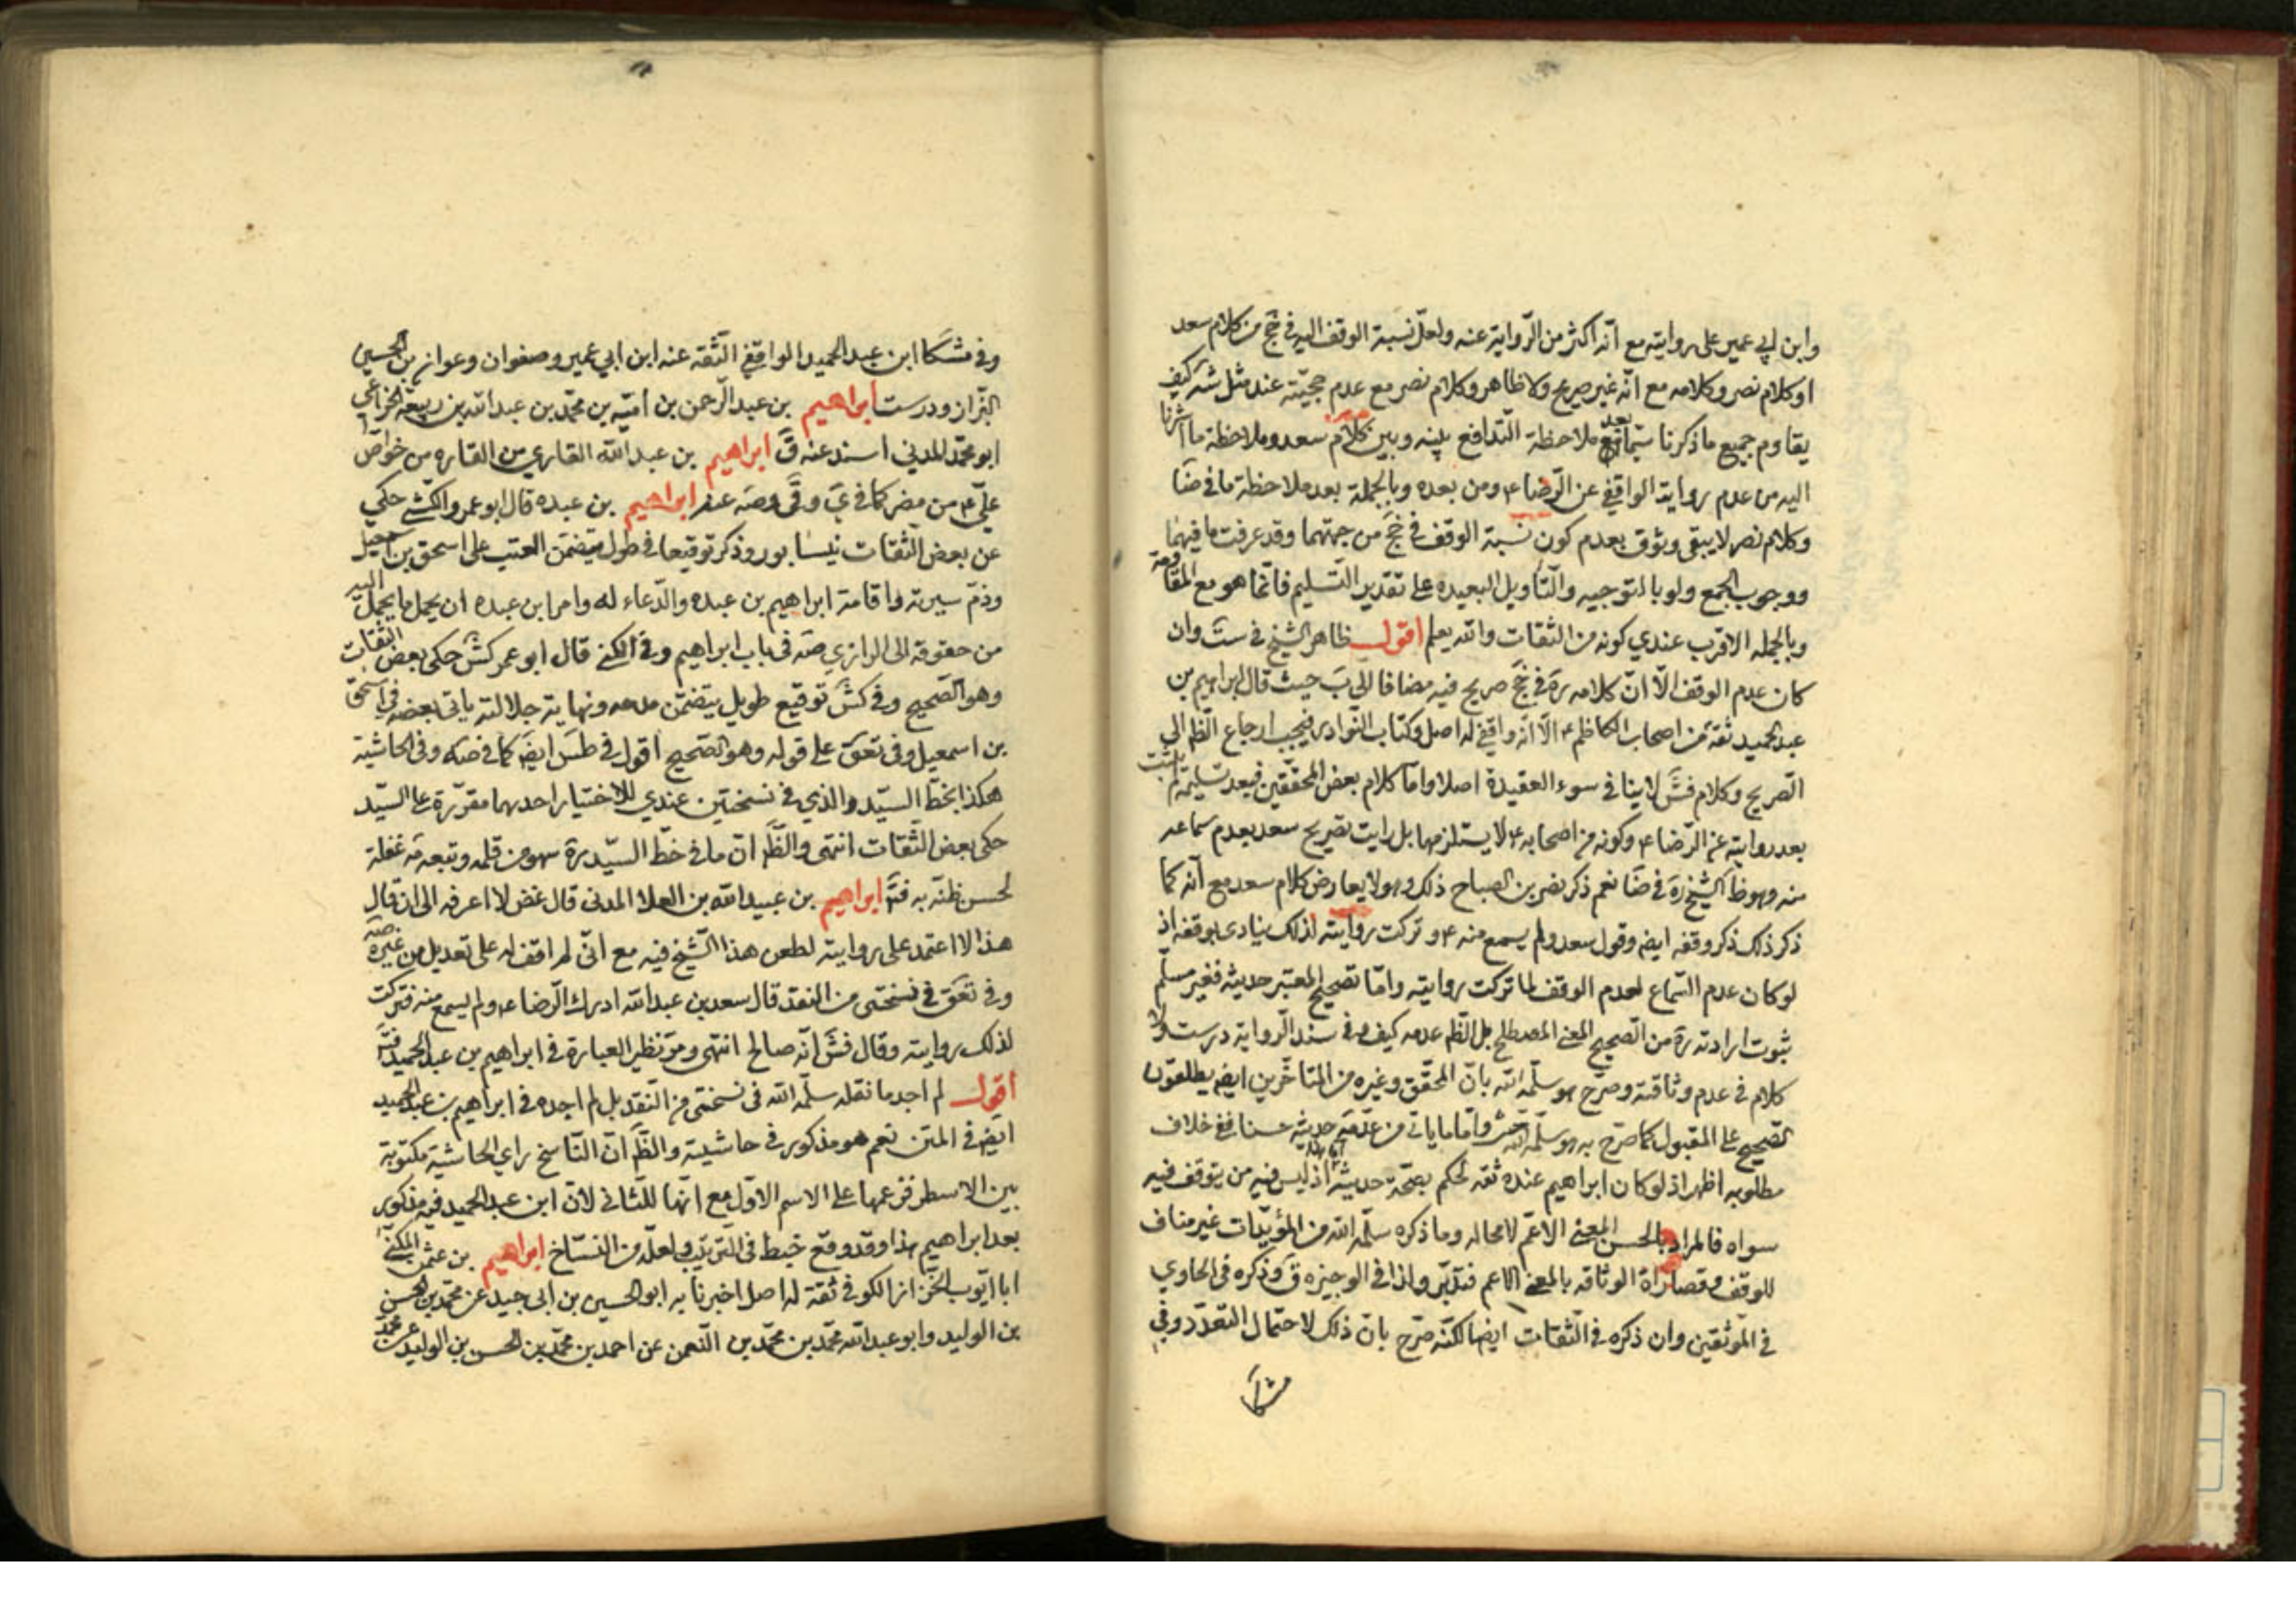 وابن ابي عمير على روايته مع انّه اكثر من الرّواية عنه ولعلّ نسبة الوقف اليه في جخ من كلام سعد
او كلام نصر وكلامه مع انّه غير صريح ولا ظاهر وكلام نصر مع عدم حجيّته عند مثل شه كيف
يقاوم جميع ما ذكرنا سيّما بعد ملاحظة التّدافع بينه وبين كلام سعد وملاحظة ما اشرنا
اليه من عدم رواية الواقفي عن الرّضا ع ومن بعده وبالجملة بعد ملاحظة ما في ضا
وكلام نصر لا يبقى وثوق بعدم كون نسبة الوقف في جخ من جهتهما وقد عرفت ما فيهما
ووجوب الجمع ولو بالتوجيه والتّاويل البعيده على تقدير التّسليم فانّما هو مع المقاومة
وبالجمله الاقرب عندي كونه من الثقات والله يعلم اقول ظاهر الشيخ في ست وان
كان عدم الوقف الّا انّ كلامه ره في جخ صريح فيه مضافا الى ب حيث قال ابراهيم بن
عبد الحميد ثقة من اصحاب الكاظم ع الّا انّه واقفي له اصل وكتاب النّوادر فيجب ارجاع الظّم الى
الصّريح وكلام فش لا ينافي سوء العقيدة اصلا وامّا كلام بعض المحقّقين فبعد تسليمه لم يثبت
بعد روايته عن الرّضا ع وكونه من اصحابه ع لا يستلزمها بل رايت تصريح سعد بعدم سماعه
منه وهو ظا الشيخ ره في ضا نعم ذكر نصر بن الصباح ذلك وهو لا يعارض كلام سعد مع انّه كما
ذكر ذلك ذكر وقفه ايضه وقول سعد ولم يسمع منه ع و تركت روايته لذلك ينادى بوقفه اذ
لو كان عدم السّماع لعدم الوقف لما تركت روايته وامّا تصحيح المعتبر حديثه فغير مسلّم
ثبوت ارادته ره من الصّحيح المعنى المصطلح بل الظّم عدمه كيف و في سند الرّواية درست ولا
كلام في عدم وثاقته وصرّح هو سلّمه الله بانّ المحقّق وغيره من المتاخّرين ايضه يطلقون
الصّحيح على المقبول كما صرّح به هو سلّمه الله وامّا ما ياتى من عدّمه حديثه حسنا ففي خلاف
مطلوبه اظهر اذ لو كان ابراهيم عنده ثقه لحكم بصحّة حديثه اذ ليس فيه من يتوقف فيه
سواه فالمراد بالحسن المعنى الاعم لا محاله وما ذكره سلّمه الله من المؤيّدات غير مناف
للوقف وقصاراة الوثاقه بالمعنى الاعم فتدبّر ولذا في الوجيزه ق وذكره في الحاوي
في الموثقين وان ذكره في الثقات ايضا لكنّه صرّح بانّ ذلك لاحتمال التعدّد وفي
مشكا
وفي مشكا ابن عبد الحميد الواقفي الثّقه عنه ابن ابي عمير وصفوان وعوانه بن الحسين
البزّاز ودرست ابراهيم بن عبد الرّحمن بن اميّه بن محمّد بن عبد الله بن ربيعة الخزاعي
ابو محمّد المدني اسند عنه ق ابراهيم بن عبد الله القاري من القاره من خواصّ
عليّ ع من مضر كما في ي وقى وصه عنه ابراهيم بن عبده قال ابو عمرو الكشّي حكي
عن بعض الثّقات نيسابور وذكر توقيعا في طول يتضمّن العتب على اسحق بن اسمعيل
وذمّ سيرته واقامة ابراهيم بن عبده والدّعاء له وامر ابن عبده ان يحمل ما يحمل اليه
من حقوقه الى الرازي صه في باب ابراهيم وفي الكنى قال ابو عمر كش حكى بعض الثقات
وهو الصّحيح وفي كش توقيع طويل يتضمّن مدحه ونهاية جلالته ياتى بعضه في اسحق
بن اسمعيل وفي تعق على قوله وهو الصحيح اقول في طس ايضه كما في صه وفي الحاشية
هكذا بخطّ السيّد والذي في نسختين عندي للاختيار احدهما مقرّرة على السيّد
حكى بعض الثّقات انتهى والظّم انّ ما في خطّ السيّد ره سهو من قلمه وتبعه مه غفلة
لحسن ظنّه به فتد ابراهيم بن عبيد الله بن العلا المدنى قال غض لا اعرفه الى ان قال
هذا لا اعتمد على روايته لطعن هذا الشّيخ فيه مع انّي لم اقف له على تعديل من غيره صه
وفي تعق في نسختى من النقد قال سعد بن عبد الله ادرك الرّضا ع ولم يسمع منه فتركت
لذلك روايته وقال فش انّه صالح انتهى ومرّ نظير العبارة في ابراهيم بن عبد الحميد فتد
اقول لم اجد ما نقله سلّمه الله في نسختى من النّقد بل لم اجده في ابراهيم بن عبد الحميد
ايضه في المتن نعم هو مذكور في حاشيته والظّم انّ النّاسخ راى الحاشية مكتوبة
بين الاسطر فزعمها على الاسم الاوّل مع انّها للثّاني لانّ ابن عبد الحميد فيه مذكور
بعد ابراهيم هذا وقد وقع خبط في التّرتيب ولعلّه من النسّاخ ابراهيم بن عثمن المكنّى
ابا ايّوب الخزّاز الكوفي ثقة له اصل اخبرنا به ابو الحسين بن ابي جيد عن محمّد بن الحسن
بن الوليد وابو عبد الله محمّد بن محمّد بن النّعمن عن احمد بن محمّد بن الحسن بن الوليد عن محمّد